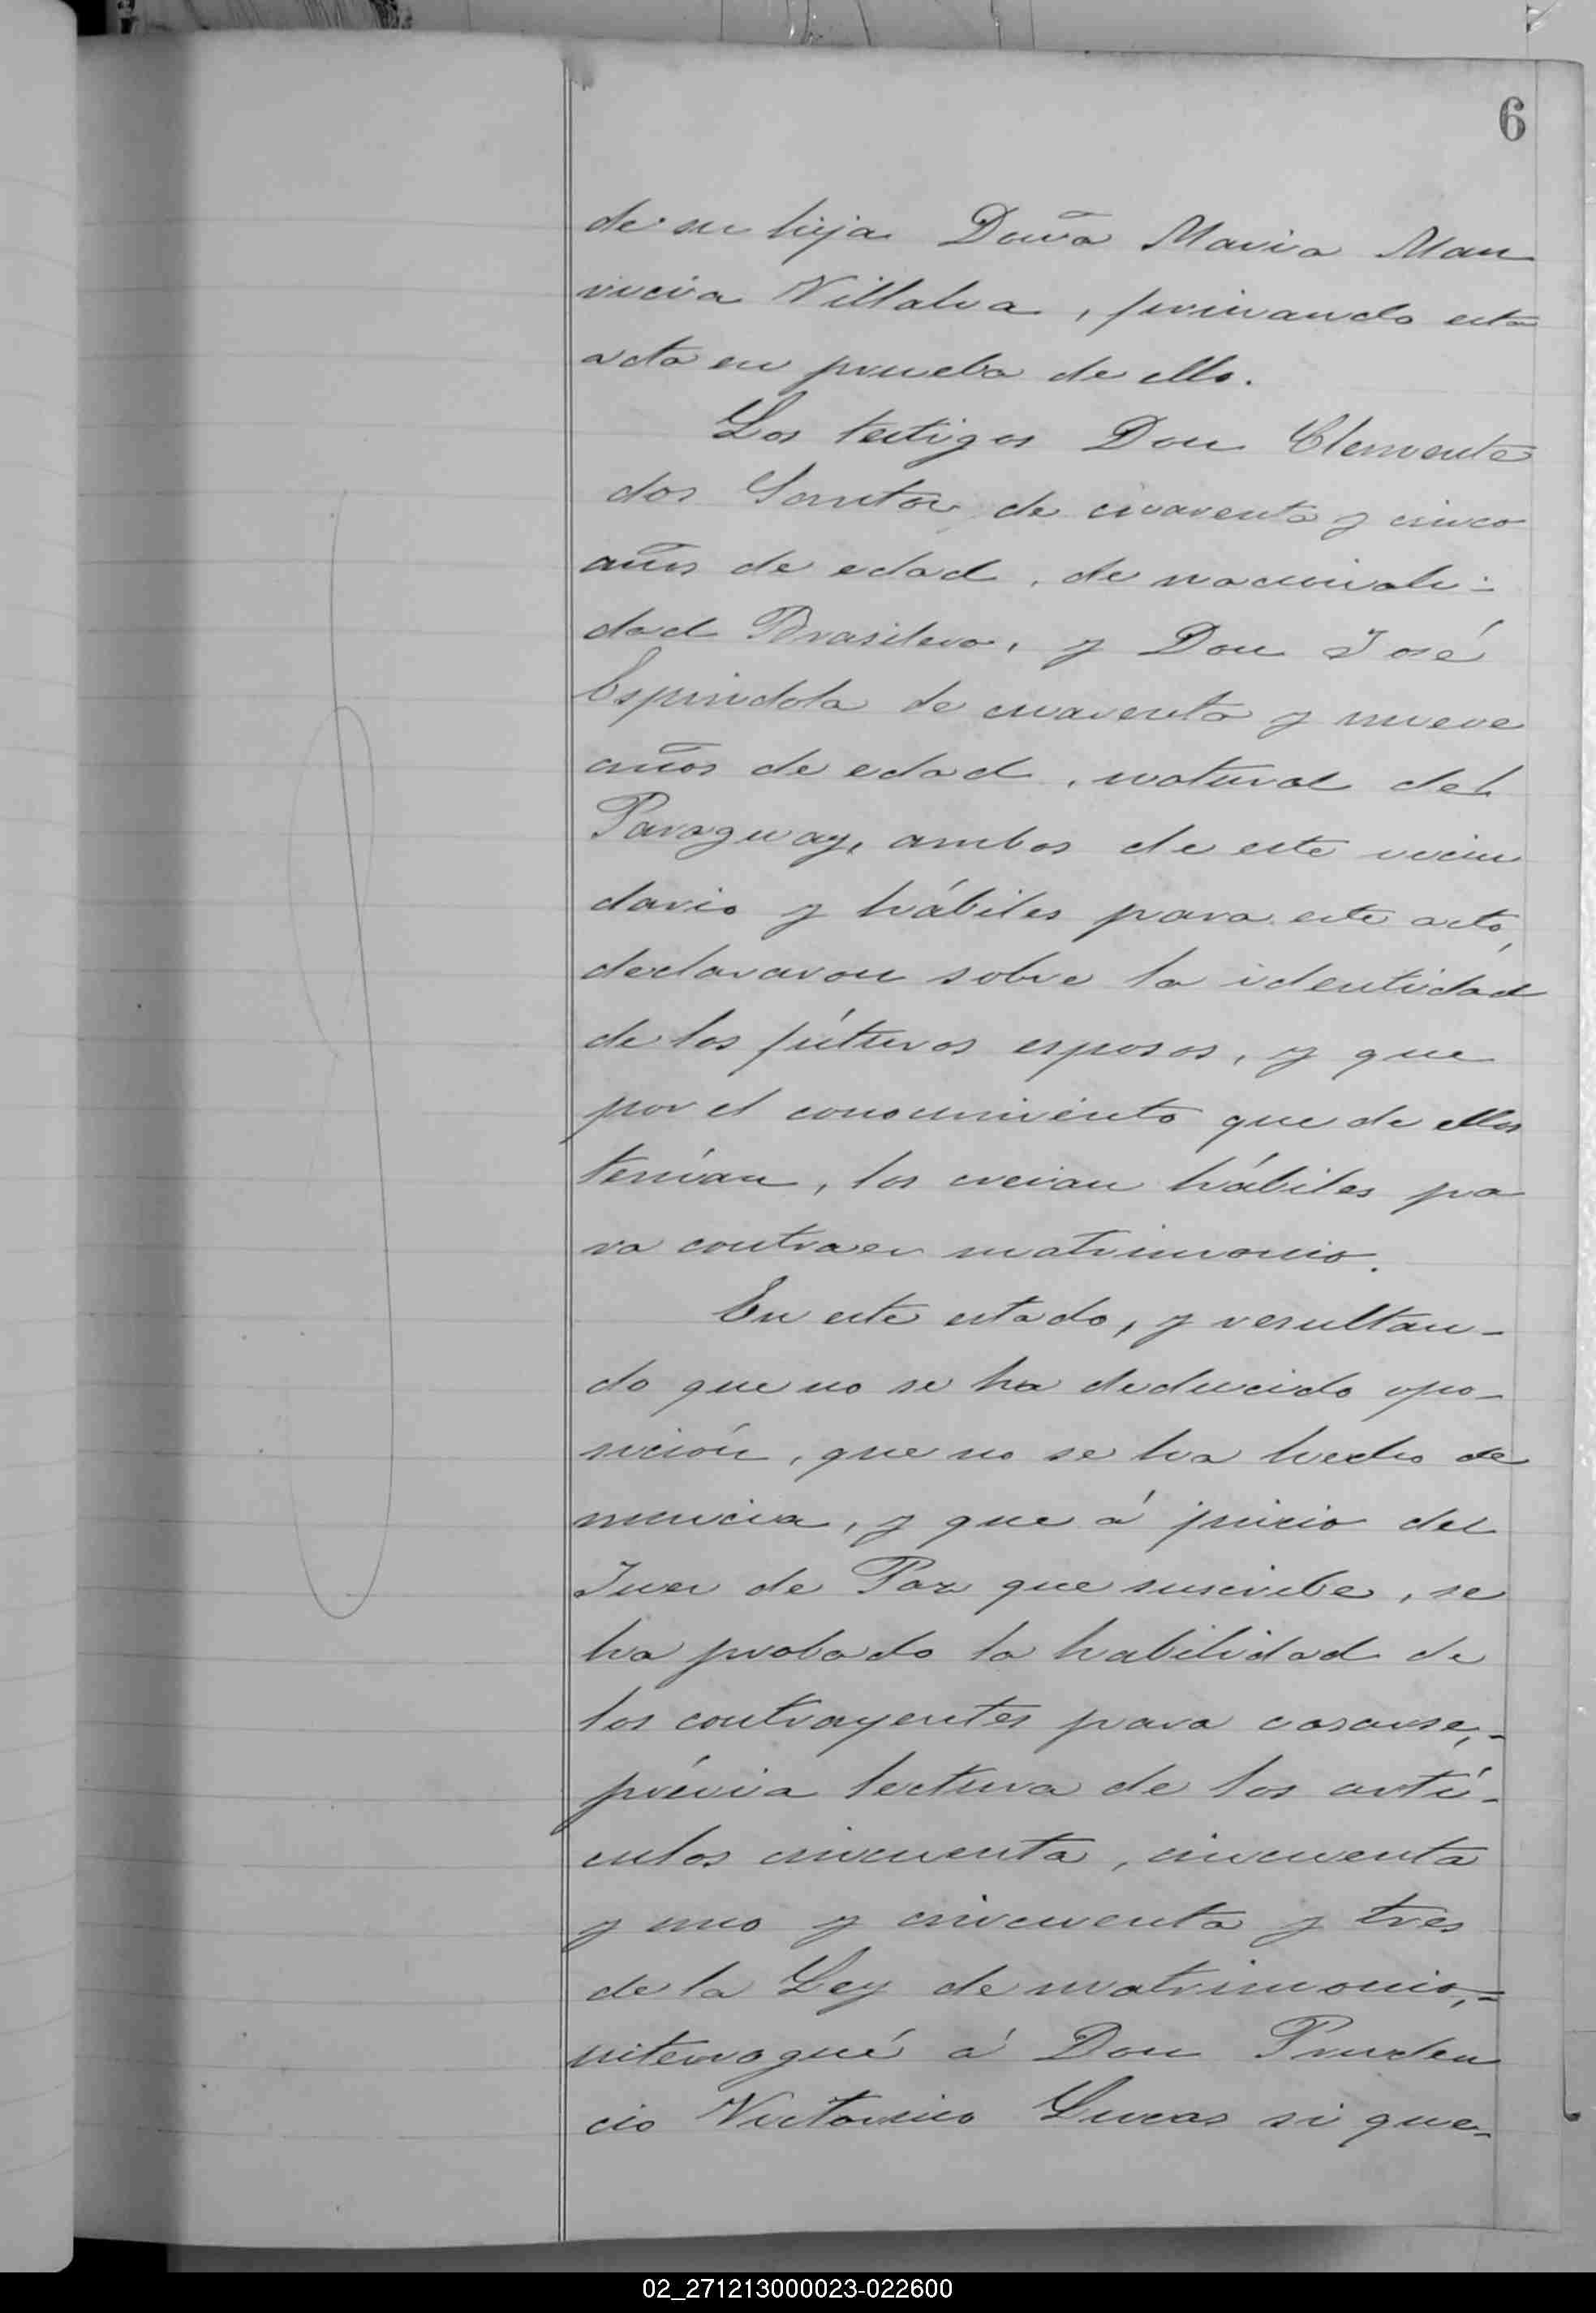 6
de su hija Doña Maria Mau
ricia Villalva, firmando esta
acta en prueba de ello.
Los testigos Don Clemente
dos Santos, de cuarenta y cinco
años de edad, de nacionali-
dad Brasilera, y Don José
Espindola de cuarenta y nueve
años de edad, natural del
Paraguay, ambos de este vecin
dario y hábiles para este acto,
declararon sobre la identidad
de los fúturos esposos, y que
por el conocimiento que de ellos
tenían, los creian hábiles pa
ra contraer matrimonio.
En este estado, y resultan-
do que no se ha deducido opo-
sición, que no se ha hecho de
nuncia, y que á juicio del
Juez de Paz que suscribe, se
ha probado la habilidad de
los contrayentes para casarse,-
prévia lectura de los artí-
culos cincuenta, cincuenta
y uno y cincuenta y tres
de la Ley de matrimonio,=
interrogué á Don Pruden
cio Victorino Lucas si que-
02_271213000023-022600